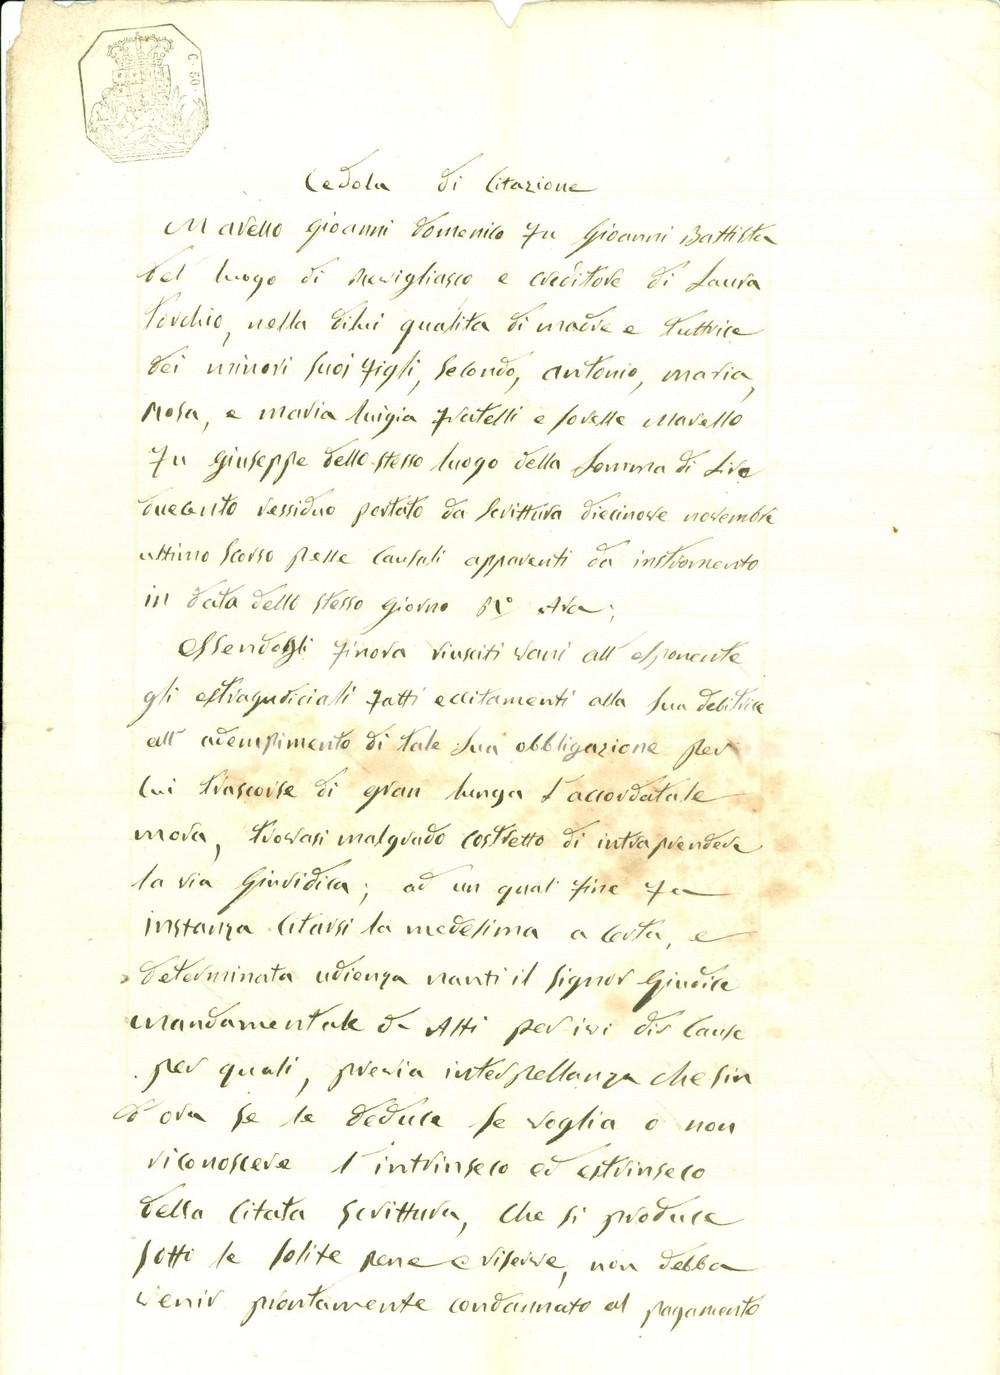 C. 50.
Cedola di Citazione
Mavello Gioanni Domenico fu Gioanni Battista
del luogo di Revigliasco e creditore di Laura
Torchio, nella dilui qualita di madre e tuttrice
dei minori suoi figli, Secondo, Antonio, Maria,
Rosa, e Maria Luigia fratelli e sorelle Mavello
fu Giuseppe dello stesso luogo della somma di Lire
duecento ressiduo portato da scrittura diecinove novembre
ultimo scorso pelle causali apparenti da instromento
in data dello stesso giorno
Essendogli finora riusciti vani all esponente
gli estragudiciali fatti eccitamenti alla sua debitrice
all adempimento di tale sua obbligazione per
lui trascorse di gran lunga l'accordatale
mora, trovasi malgrado costretto di intraprendere
la via Giuridica; ad un qual fine fu
instanza citarsi la medesima a certa, e
determinata udienza nanti il Signor Giudice
Mandamentale d' Asti per ivi dir cause
per quali, previa interpellanza che sin
d'ora se le deduce se voglia o non
riconoscere l'intrinseco ed estrinseco
della citata scrittura, che si produce
sotti le solite pene e riserve, non debba
venir prontamente condannato al pagamento